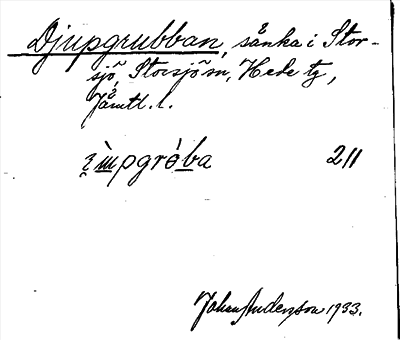 Djupgrubban, sänka i Stor-
sjö, Storsjö sn, Hede tg,
Jämtl. l.
211
Johan Anderson 1933.